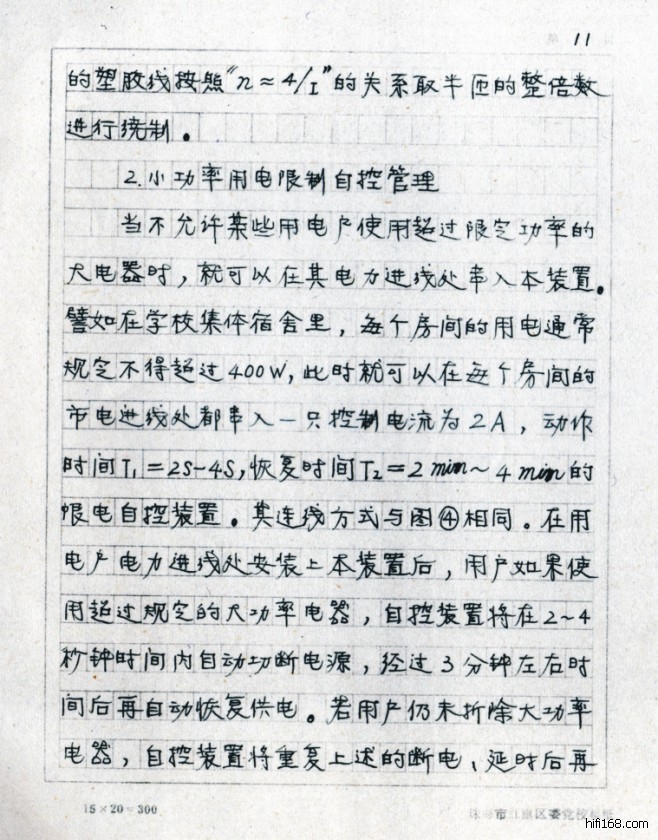 11
的塑胶线按照“n≈4/I”的关系取半匝的整倍数
进行绕制。
2.小功率用电限制自控管理
当不允许某些用电户使用超过限定功率的
大电器时，就可以在其电力进线处串入本装置。
譬如在学校集体宿舍里，每个房间的用电通常
规定不得超过400W，此时就可以在每个房间的
市电进线处都串入一只控制电流为2A，动作
时间T₁=2S-4S,恢复时间T₂=2min~4min的
限电自控装置。其连线方式与图④相同。在用
电户电力进线处安装上本装置后，用户如果使
用超过规定的大功率电器，自控装置将在2~4
秒钟时间内自动切断电源，经过3分钟左右时
间后再自动恢复供电。若用户仍未拆除大功率
电器，自控装置将重复上述的断电、延时后再
15×20=300
市江东区委党校
hifi168.com